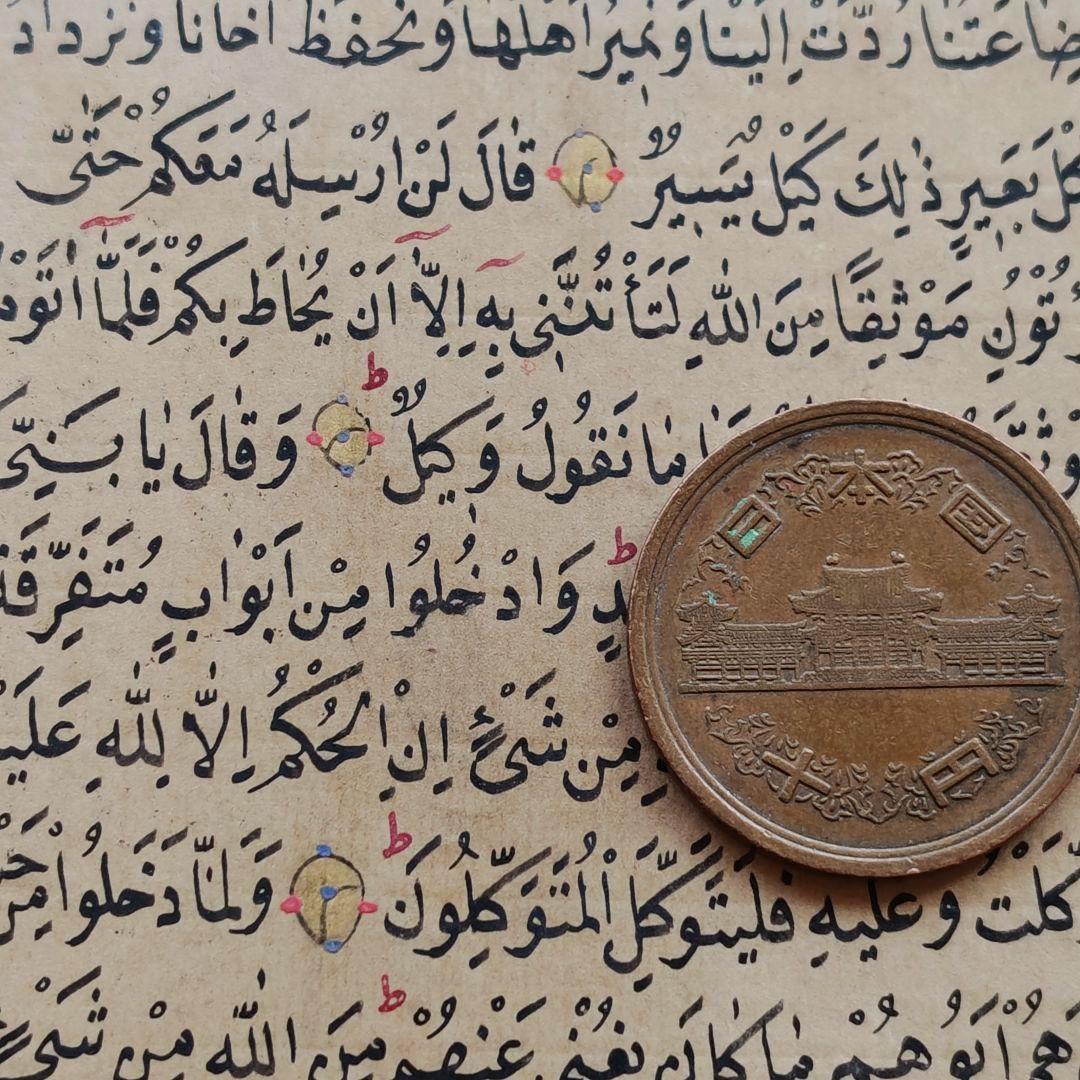 رُدَّتْ اِلَيْنَا وَنَمِيرُ اَهْلَهَا وَنَحْفَظُ اَخَانَا وَنَزْدَادُ
كَيْلَ بَعِيرٍ ذٰلِكَ كَيْلٌ يَسِيرٌ قَالَ لَنْ اُرْسِلَهُ مَعَكُمْ حَتّٰى
تُؤْتُونِ مَوْثِقًا مِنَ اللّٰهِ لَتَأْتُنَّنِى بِهِٓ اِلَّٓا اَنْ يُحَاطَ بِكُمْ فَلَمَّٓا اٰتَوْهُ
مَا نَقُولُ وَكِيلٌ ط وَقَالَ يَا بَنِىَّ
وَادْخُلُوا مِنْ اَبْوَابٍ مُتَفَرِّقَةٍ ط
مِنْ شَىْءٍ اِنِ الْحُكْمُ اِلَّا لِلّٰهِ عَلَيْهِ
تَوَكَّلْتُ وَعَلَيْهِ فَلْيَتَوَكَّلِ الْمُتَوَكِّلُونَ ط وَلَمَّا دَخَلُوا مِنْ
اَبُوهُمْ مَا كَانَ يُغْنِى عَنْهُمْ مِنَ اللّٰهِ مِنْ شَىْءٍ ط
日本国
十円